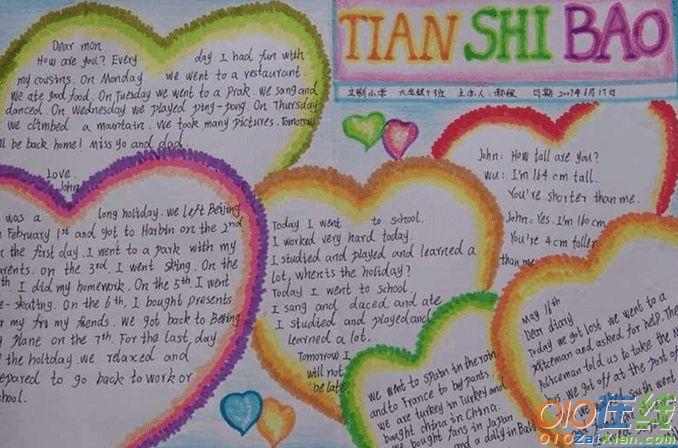 TIAN SHI BAO
六年级十3班
Dear mon
How are you? Every day I had fun with
my cousins. On Monday we went to a restaurant.
We ate good food. On Tuesday we went to a prak. we sang and
danced. On Wednesday we played ping-pong. On Thursday
we climbed a mountain. We took many pictures. Tomorrow
be back home! Miss yo and dad
Love.
John
was a long holiday. we left Beijing
February 1st and got to Harbin on the 2nd
the first day. I went to a park with my
on the 3rd I went sking. On the
I did my homework. On the 5th. I went
skating. On the 6th, I bought presents
my fro my friends. we got back to Beijing
plane on the 7th. For the last day
the holiday. we relaxed and
to go back to work or
Today I went to school.
I worked very hard today,
I studied and played and learned a
lot, when's the holiday?
Today I went to school
I sang and daced and ate
I studied and played and
learned a lot.
Tomorrow I
will not
be late
John: How tall are you?
wu: I'm 164 cm tall.
You're shorter than me.
John: Yes. I'm 160 cm
You're 4cm taller
than me
we went to Spain in the rain
and to France to by pants
we are turkey in Turkey and
bught china in China.
bought fans in Japan
and a dolly in
May 16th
Dear diary
Today we got lost. we went to a
policeman and asked for help. The
policeman told us to take the
we got off at the post of
south went
010在线
010ZaiXian.com